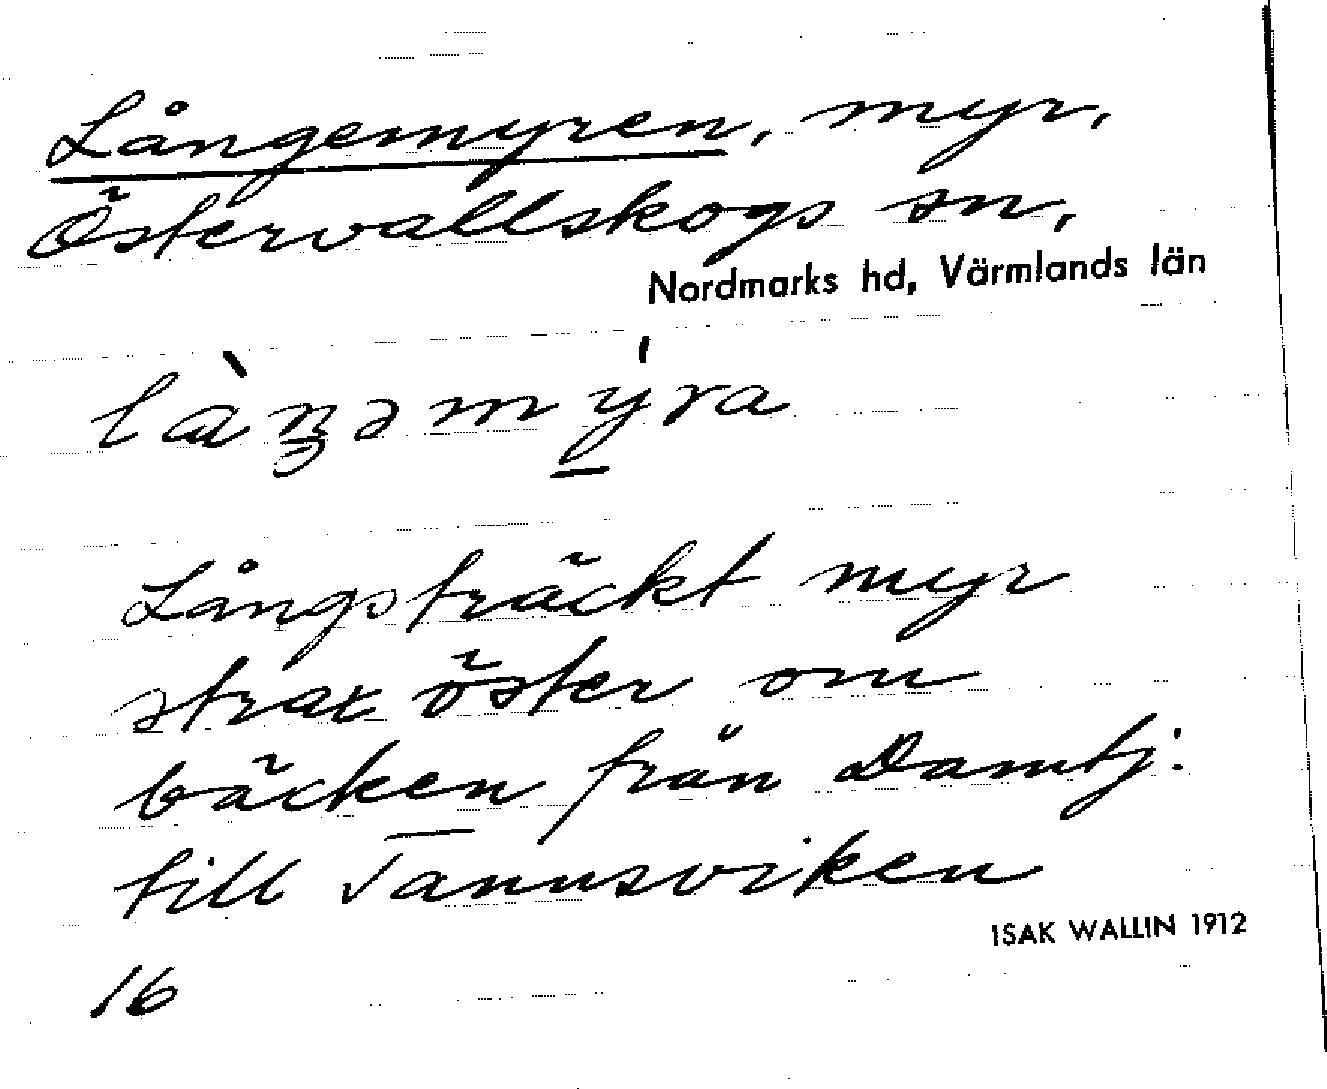 Långemyren, myr,
Östervallskogs sn,
Nordmarks hd, Värmlands län
Långsträckt myr
strax öster om
bäcken från Damtj:
till Tannsviken
ISAK WALLIN 1912
16